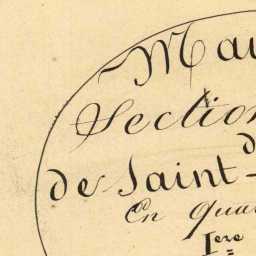 Mau
Section
d
de Saint-
En qua
1ere